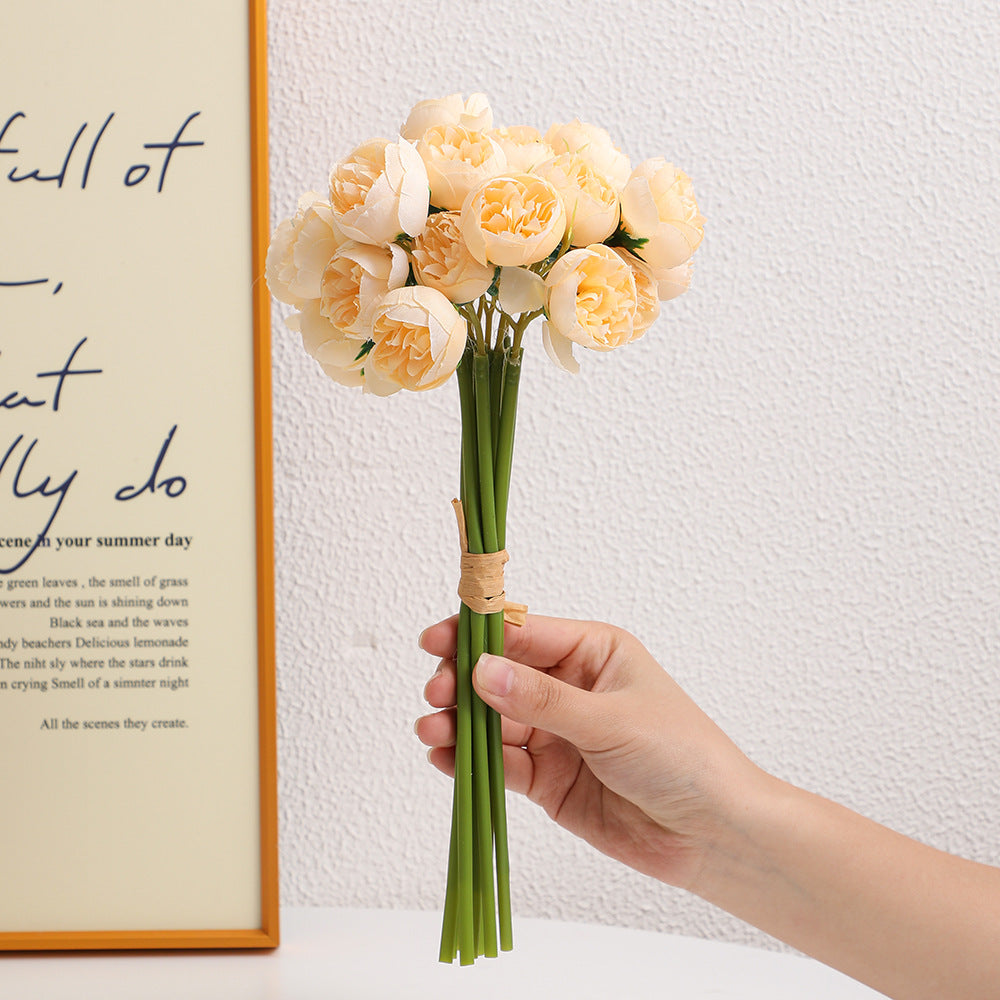 full of
,
at
lly do
scene in your summer day
green leaves , the smell of grass
wers and the sun is shining down
Black sea and the waves
ndy beachers Delicious lemonade
The niht sly where the stars drink
n crying Smell of a simnter night
All the scenes they create.